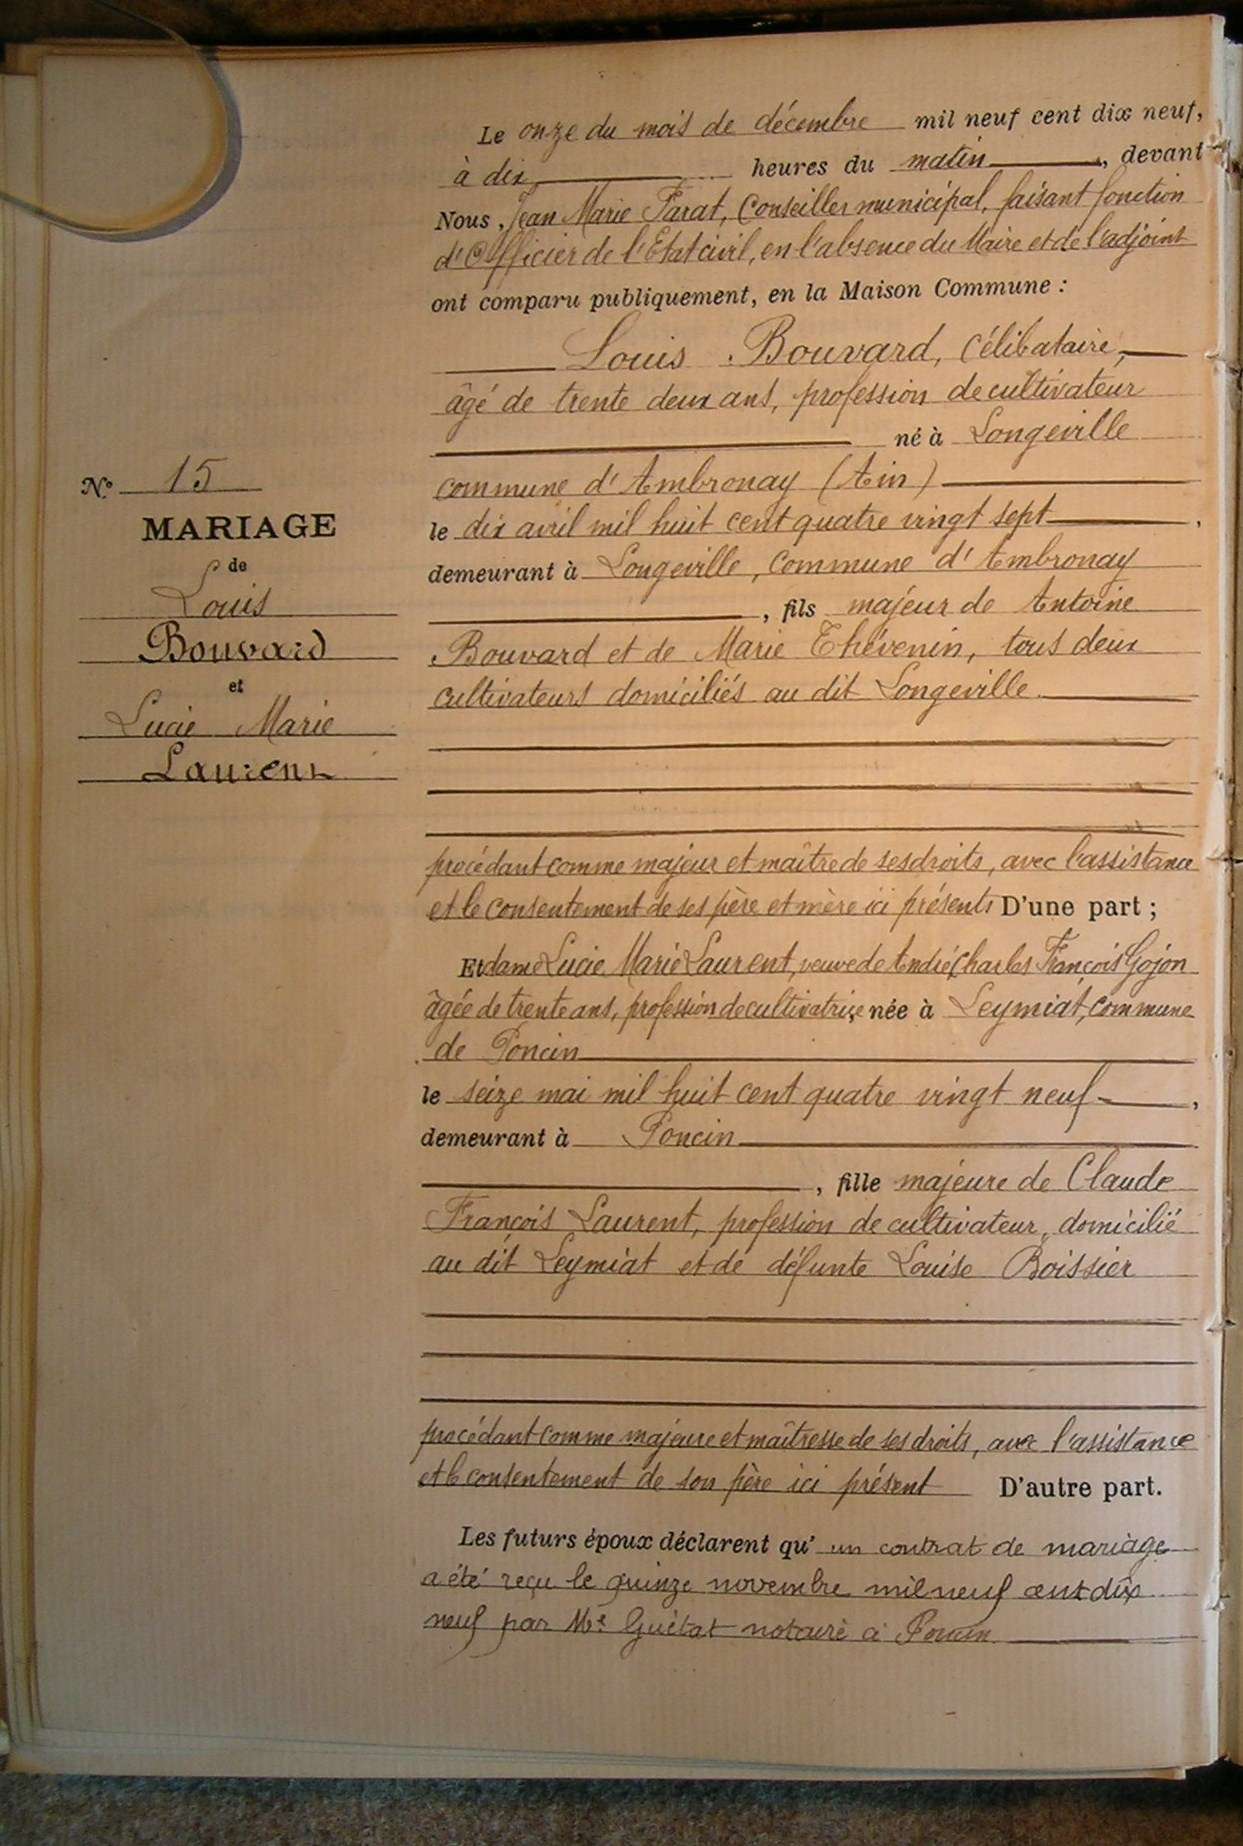 Le onze du mois de décembre mil neuf cent dix neuf,
à dix heures du matin, devant
Nous, Jean Marie Farat, Conseiller municipal, faisant fonction
d'Officier de l'Etat civil, en l'absence du Maire et de l'adjoint
ont comparu publiquement, en la Maison Commune :
Louis Bouvard, Célibataire,
âgé de trente deux ans, profession de cultivateur
né à Longeville
commune d'Ambronay (Ain)
le dix avril mil huit cent quatre vingt sept,
demeurant à Longeville, commune d'Ambronay
, fils majeur de Antoine
Bouvard et de Marie Thévenin, tous deux
cultivateurs domiciliés au dit Longeville.
procédant comme majeur et maître de ses droits, avec l'assistance
et le consentement de ses père et mère ici présents D'une part ;
Et dame Lucie Marie Laurent, veuve de André Charles François Gojon
âgée de trente ans, profession de cultivatrice née à Leymiat, commune
de Poncin
le seize mai mil huit cent quatre vingt neuf,
demeurant à Poncin
, fille majeure de Claude
François Laurent, profession de cultivateur, domicilié
au dit Leymiat et de défunte Louise Boissier
procédant comme majeure et maîtresse de ses droits, avec l'assistance
et le consentement de son père ici présent D'autre part.
Les futurs époux déclarent qu'un contrat de mariage
a été reçu le quinze novembre mil neuf cent dix
neuf par Me Guétat notaire à Poncin
N° 15
MARIAGE
de
Louis
Bouvard
et
Lucie Marie
Laurent